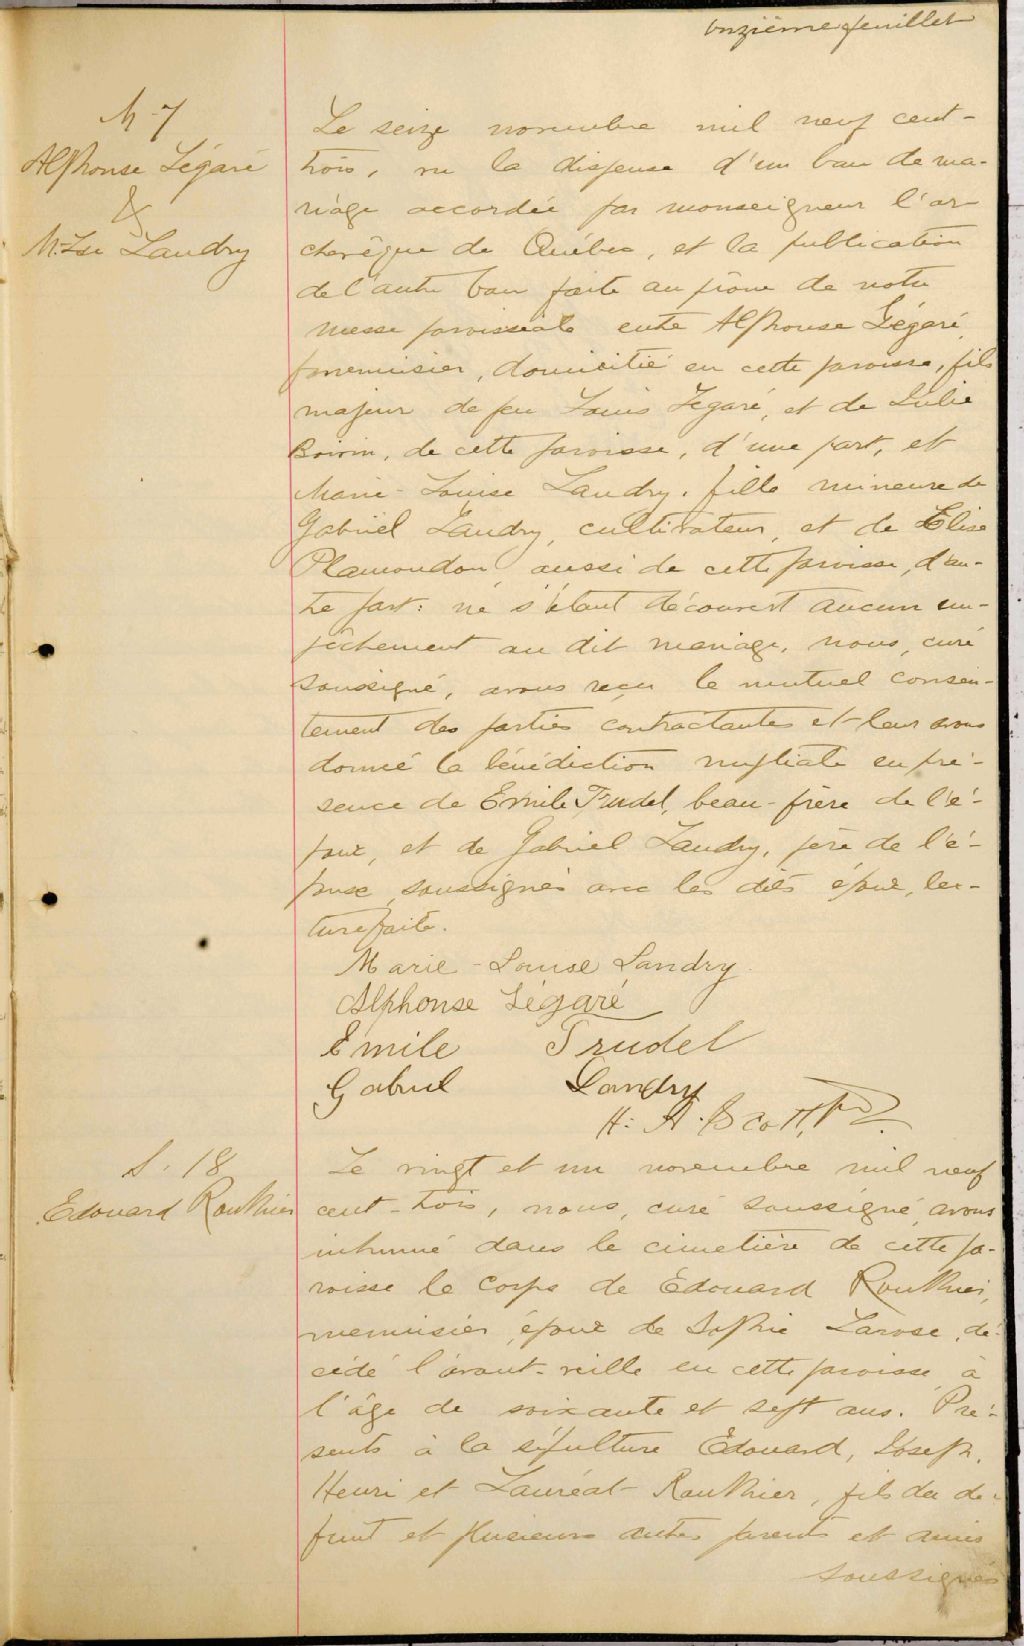 onzième feuillet
M-7
Alphonse Légaré
&
M. Lse Landry
Le seize novembre mil neuf cent-
trois, vu la dispense d'un ban de ma-
riage accordée par monseigneur l'ar-
chevêque de Québec, et la publication
de l'autre ban faite au prône de notre
messe paroissiale entre Alphonse Légaré,
menuisier, domicilié en cette paroisse, fils
majeur de feu Louis Légaré, et de Julie
Boivin, de cette paroisse, d'une part, et
Marie-Louise Landry, fille mineure de
Gabriel Landry, cultivateur, et de Elise
Plamondon, aussi de cette paroisse, d'au-
tre part: ne s'étant découvert aucun em-
pêchement au dit mariage, nous, curé
soussigné, avons reçu le mutuel consen-
tement des parties contractantes et leur avons
donné la bénédiction nuptiale en pré-
sence de Emile Trudel, beau-frère de l'é-
poux, et de Gabriel Landry, père de l'é-
pouse, soussignés avec les dits époux, lec-
ture faite.
Marie-Louise Landry.
Alphonse Légaré
Emile Trudel
Gabriel Landry
H. A. Scott, ptre
S. 18
Edouard Routhier
Le vingt et un novembre mil neuf
cent-trois, nous, curé soussigné, avons
inhumé dans le cimetière de cette pa-
roisse le corps de Edouard Routhier,
menuisier, époux de Sophie Larose, dé-
cédé l'avant-veille en cette paroisse, à
l'âge de soixante et sept ans. Pré-
sents à la sépulture Edouard, Joseph,
Henri et Lauréat Routhier, fils du dé-
funt et plusieurs autres parents et amis
soussignés